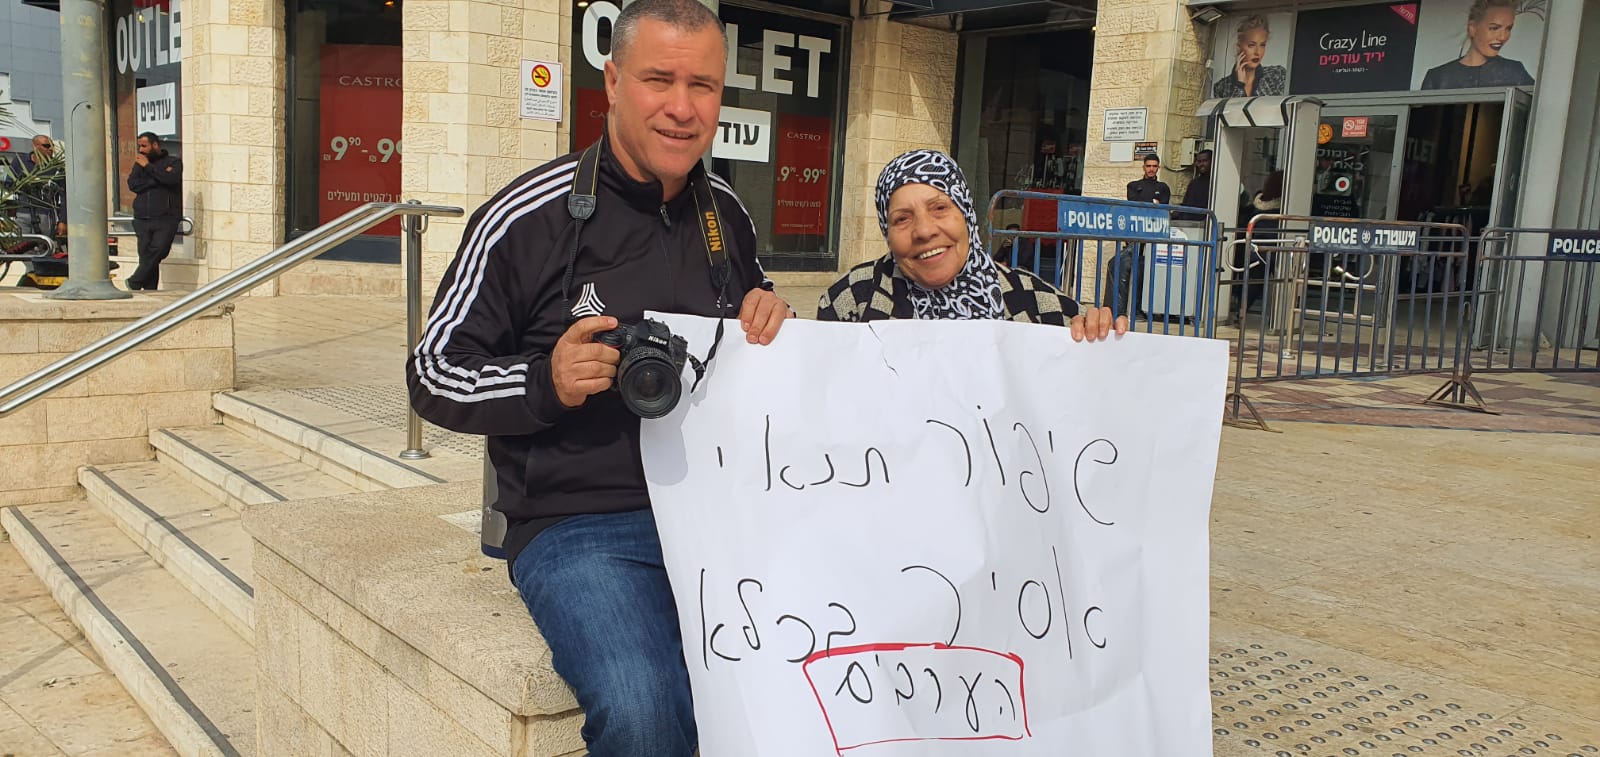 OUTLE
עודפים
CASTRO
9⁹⁰-99
ג'קטים ומעילים
OUTLET
עוד
CASTRO
9.⁹⁰-99⁹⁰
Nikon
Nikon
Crazy Line
יריד עודפים
POLICE משטרה
POLICE משטרה
POLICE
OUTLET
שיפור תנאי
אסיר בכלא
הערבים